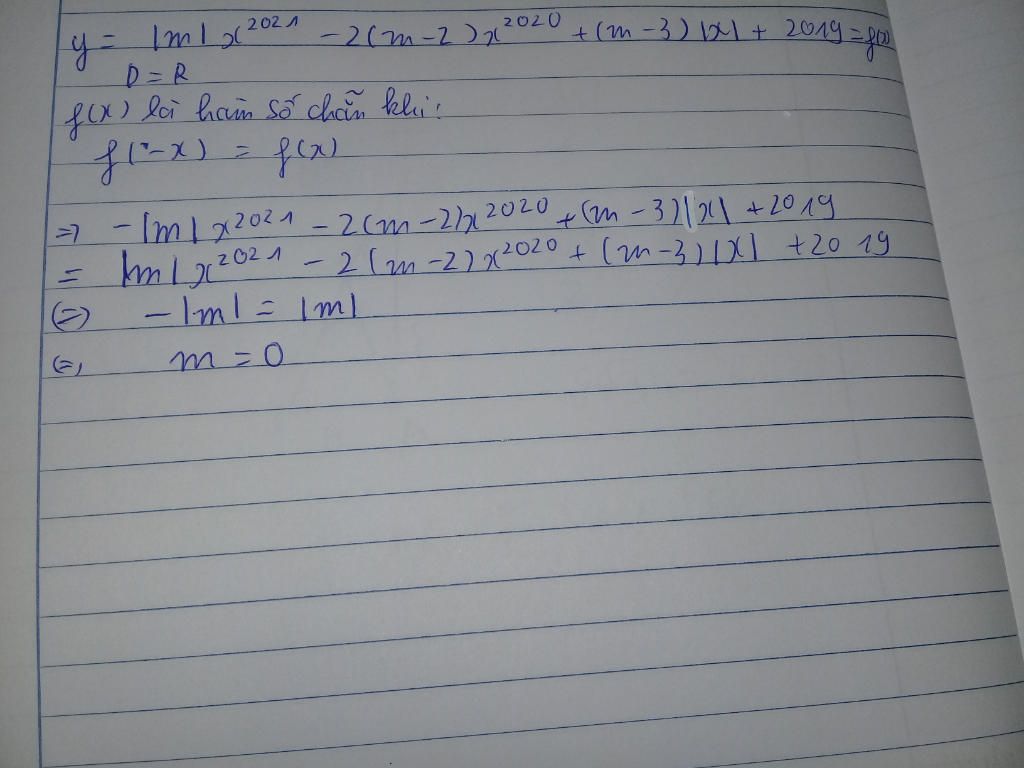 y = |m|x^2021 - 2(m-2)x^2020 + (m-3)|x| + 2019 = f(x)
D = R
f(x) là hàm số chẵn khi:
f(-x) = f(x)
⇒ -|m|x^2021 - 2(m-2)x^2020 + (m-3)|x| + 2019
= |m|x^2021 - 2(m-2)x^2020 + (m-3)|x| + 2019
⇔ -|m| = |m|
⇔ m = 0